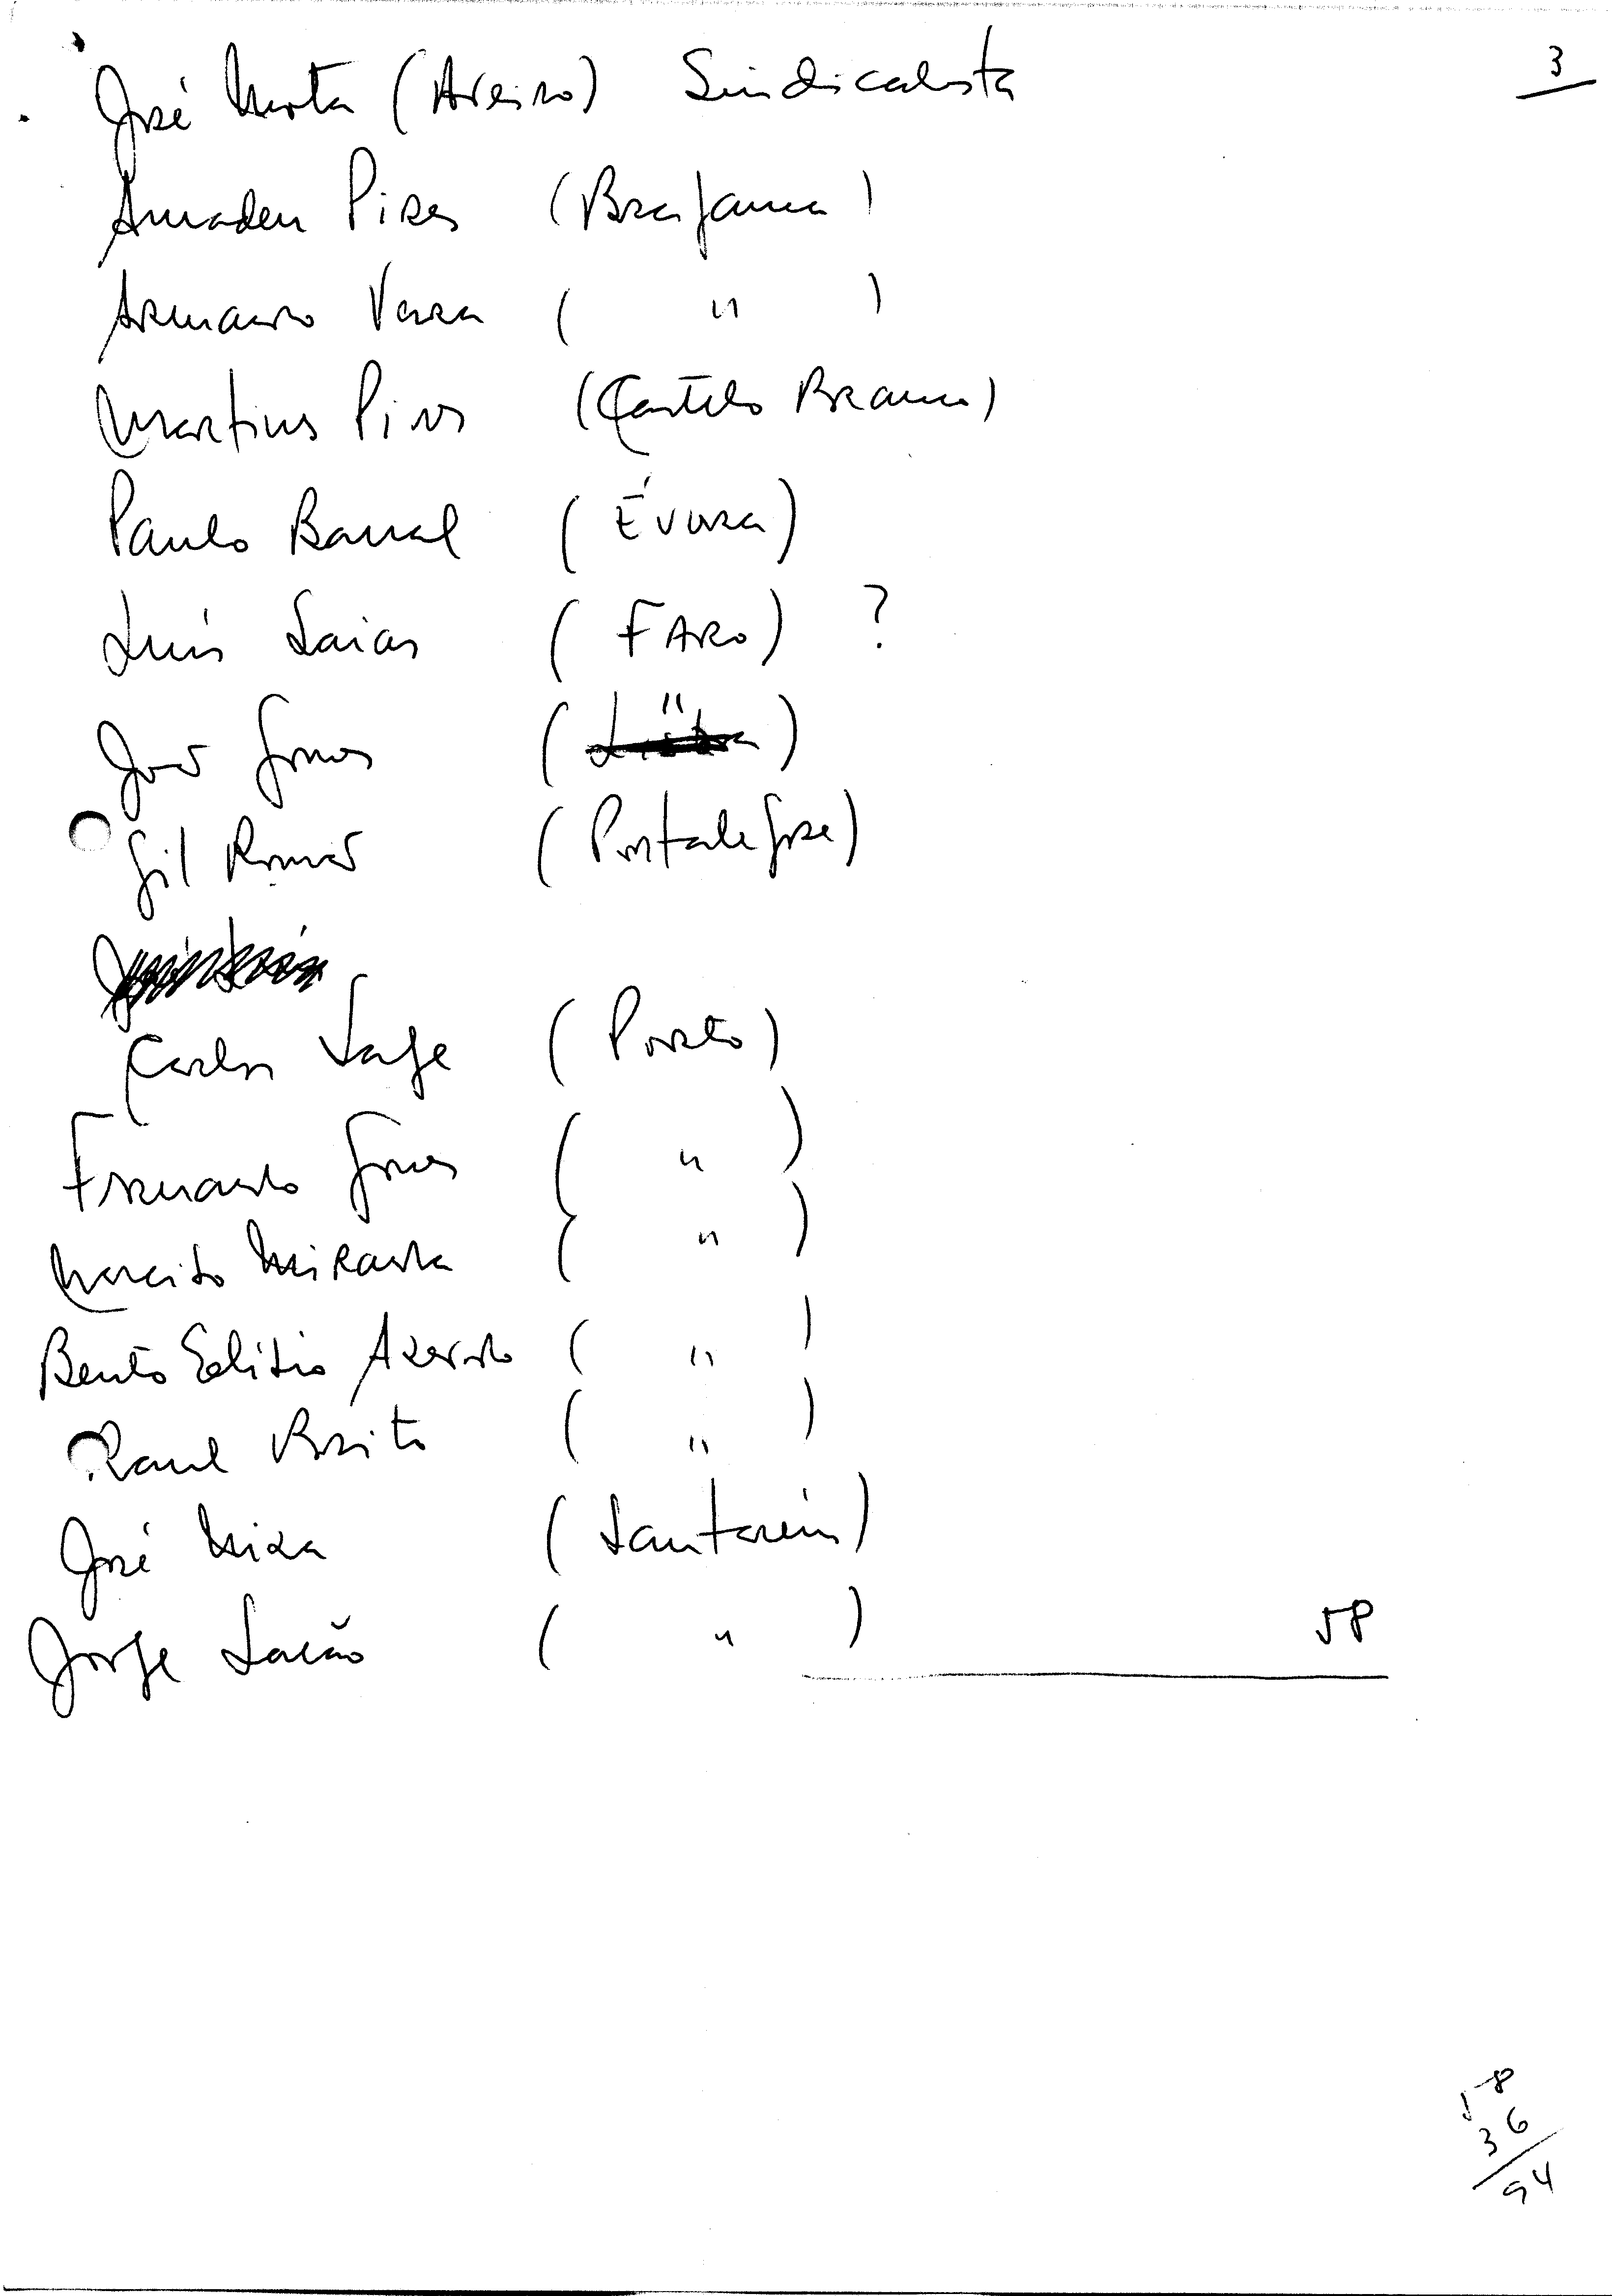 3
José Mota (Aveiro) Sindicalista
Amadeu Pires (Bragança)
Armando Vara ( " )
Martins Pires (Castelo Branco)
Paulo Barral (Évora)
Luís Saias (FARO) ?
João Gomes ( " )
Gil Romão (Portalegre)
Carlos Lage (Porto)
Fernando Gomes ( " )
Narciso Miranda ( " )
Bento Elísio Azevedo ( " )
Raul Brito ( " )
José Niza (Santarém)
Jorge Lacão ( " )
58
58
36
94